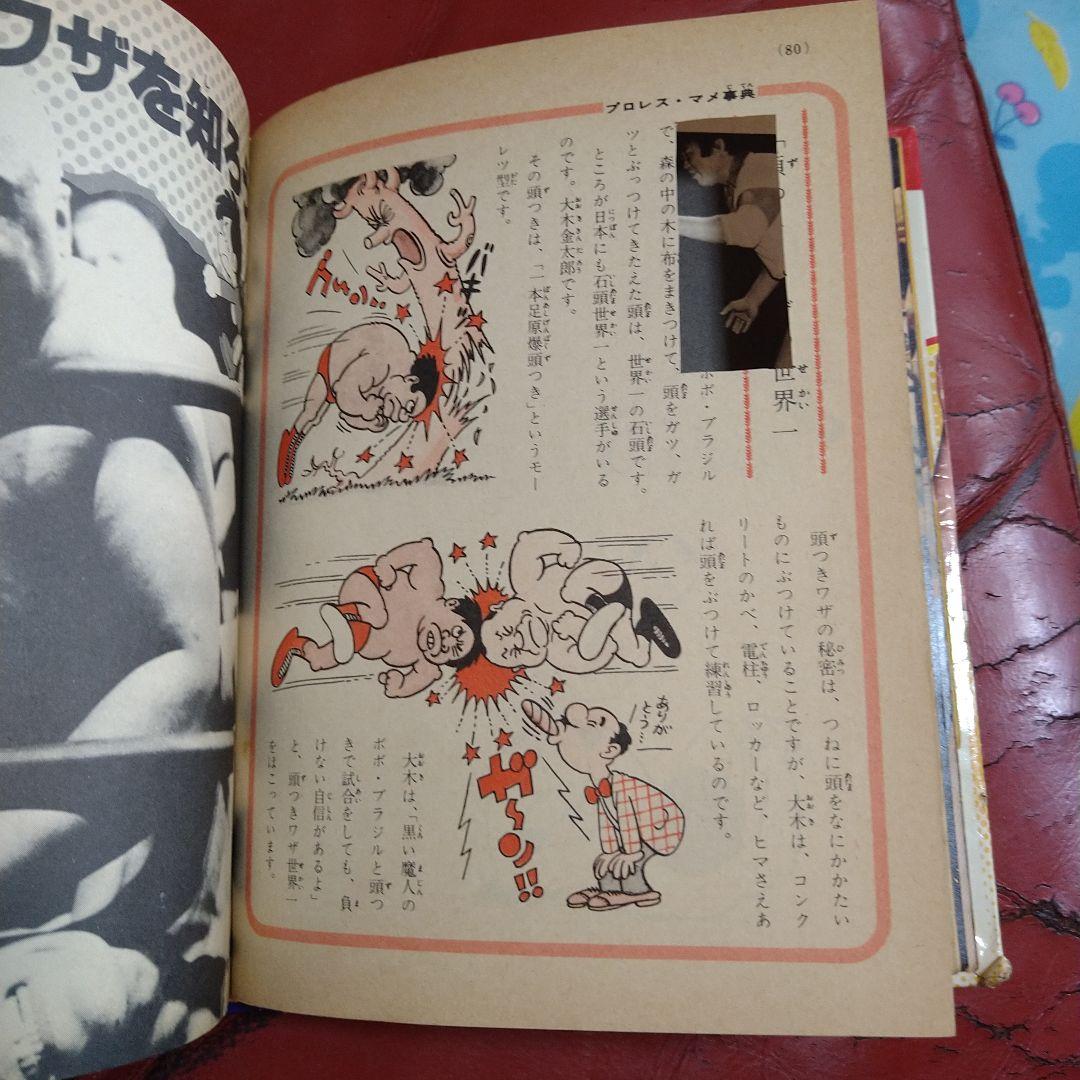 ワザを知ろ
(80)
プロレス・マメ事典
世界一
ボボ・ブラジル
で、森の中の木に布をまきつけて、頭をガツ、ガ
ツとぶっつけてきたえた頭は、世界一の石頭です。
ところが日本にも石頭世界一という選手がいる
のです。大木金太郎です。
その頭つきは、「一本足原爆頭つき」というモー
レツ型です。
頭つきワザの秘密は、つねに頭をなにかかたい
ものにぶつけていることですが、大木は、コンク
リートのかべ、電柱、ロッカーなど、ヒマさえあ
れば頭をぶつけて練習しているのです。
ありが
とう…
ギ〜ン!!
大木は、「黒い魔人の
ボボ・ブラジルと頭つ
きで試合をしても、負
けない自信があるよ」
と、頭つきワザ世界一
をほこっています。